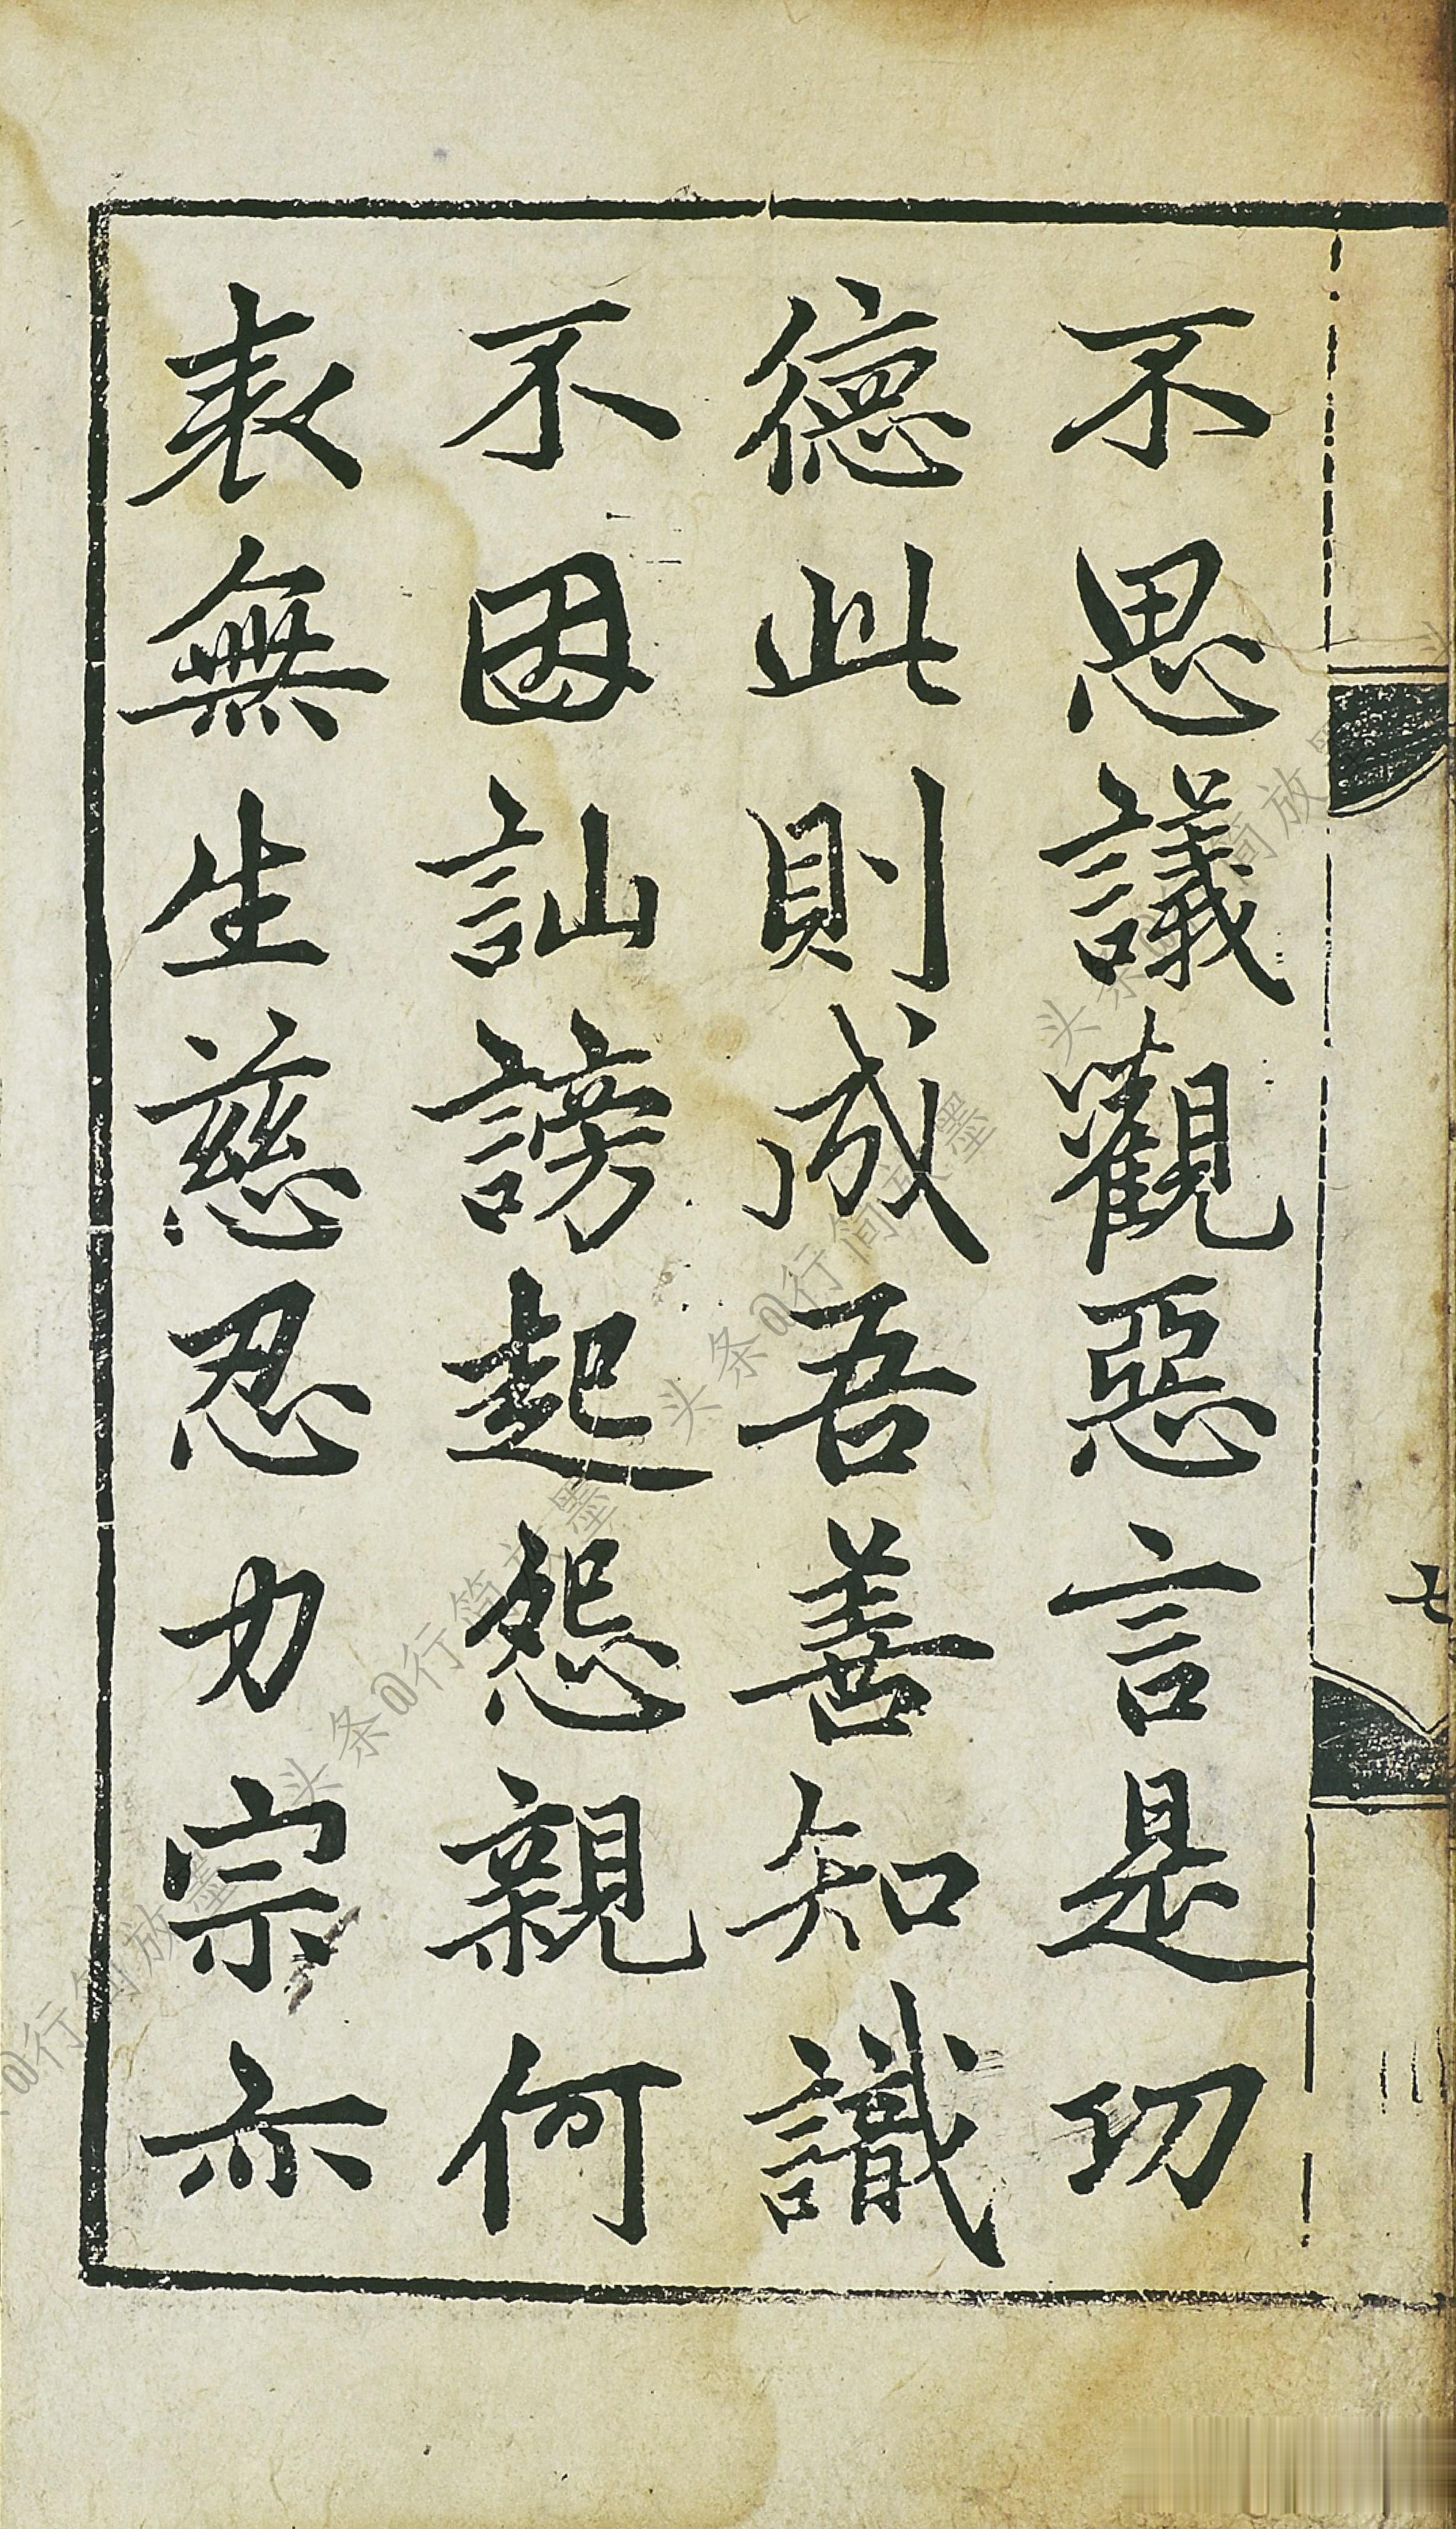 不思議觀惡言是功
德此則成吾善知識
不因訕謗起怨親何
表無生慈忍力宗亦
七
头条@行简放墨
头条@行简放墨
头条@行简放墨
@行简放墨